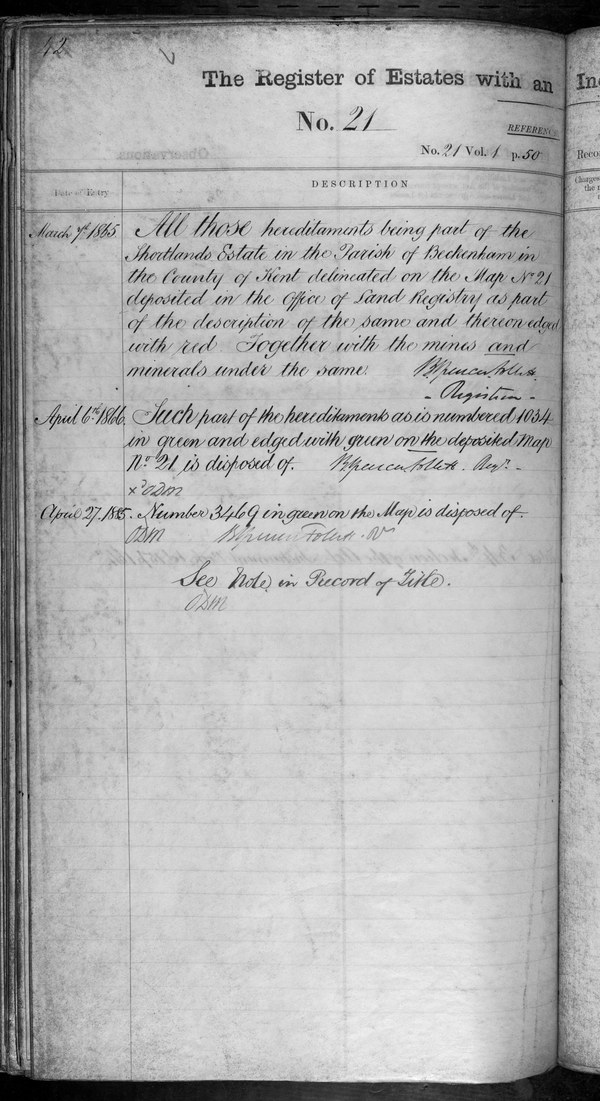 42
The Register of Estates with an
No. 21
REFERENCE
No. 21 Vol. 1 p. 50
Observations
Date of Entry
DESCRIPTION
March 7th 1865
All those hereditaments being part of the
Shortlands Estate in the Parish of Beckenham in
the County of Kent delineated on the Map No 21
deposited in the Office of Land Registry as part
of the description of the same and thereon edged
with red Together with the mines and
minerals under the same. B Spencer Follett
- Registrar -
April 6th 1866. Such part of the hereditaments as is numbered 1034
in green and edged with green on the deposited Map
No 21 is disposed of. B Spencer Follett. Regr.
xd ODM
April 27. 1885. Number 3469 in green on the Map is disposed of.
ODM B Spencer Follett.
See Note in Record of Title.
ODM
In
Recor
Charges
the